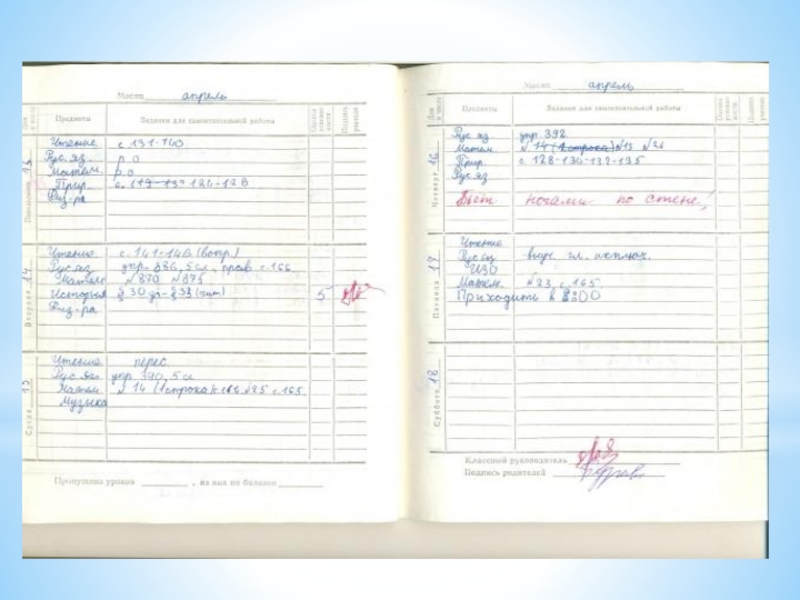 Месяц апрель
Дни и числа Предметы Задания для самостоятельной работы Оценка успеваемости Подпись учителя
Понедельник 13
Чтение с 131-140
Рус. яз. р.о
Матем. р.о
Прир. с. 124-128
Физ-ра
Вторник 14
Чтение с. 141-146 (вопр.)
Рус яз упр. 386, 5 сл, прав с. 166
Матем №870 №875
История § 30 § 31 (чит) 5
Физ-ра
Среда 15
Чтение перес
Рус яз. упр 390, 5 сл
Матем. № 14 (1 строка) №25 с. 165
Музыка
Пропущено уроков , из них по болезни
Месяц апрель
Дни и числа Предметы Задания для самостоятельной работы Оценка успеваемости Подпись учителя
Четверг 16
Рус яз. упр 392
Матем. № 14 (1 строка) №13 №21
Прир. с. 128-130-132-135
Рус яз
Бьёт ногами по стене!
Пятница 17
Чтение
Рус яз гл.
ИЗО
Матем. №23 с. 165
Приходить в 8:00
Суббота 18
Классный руководитель
Подпись родителей